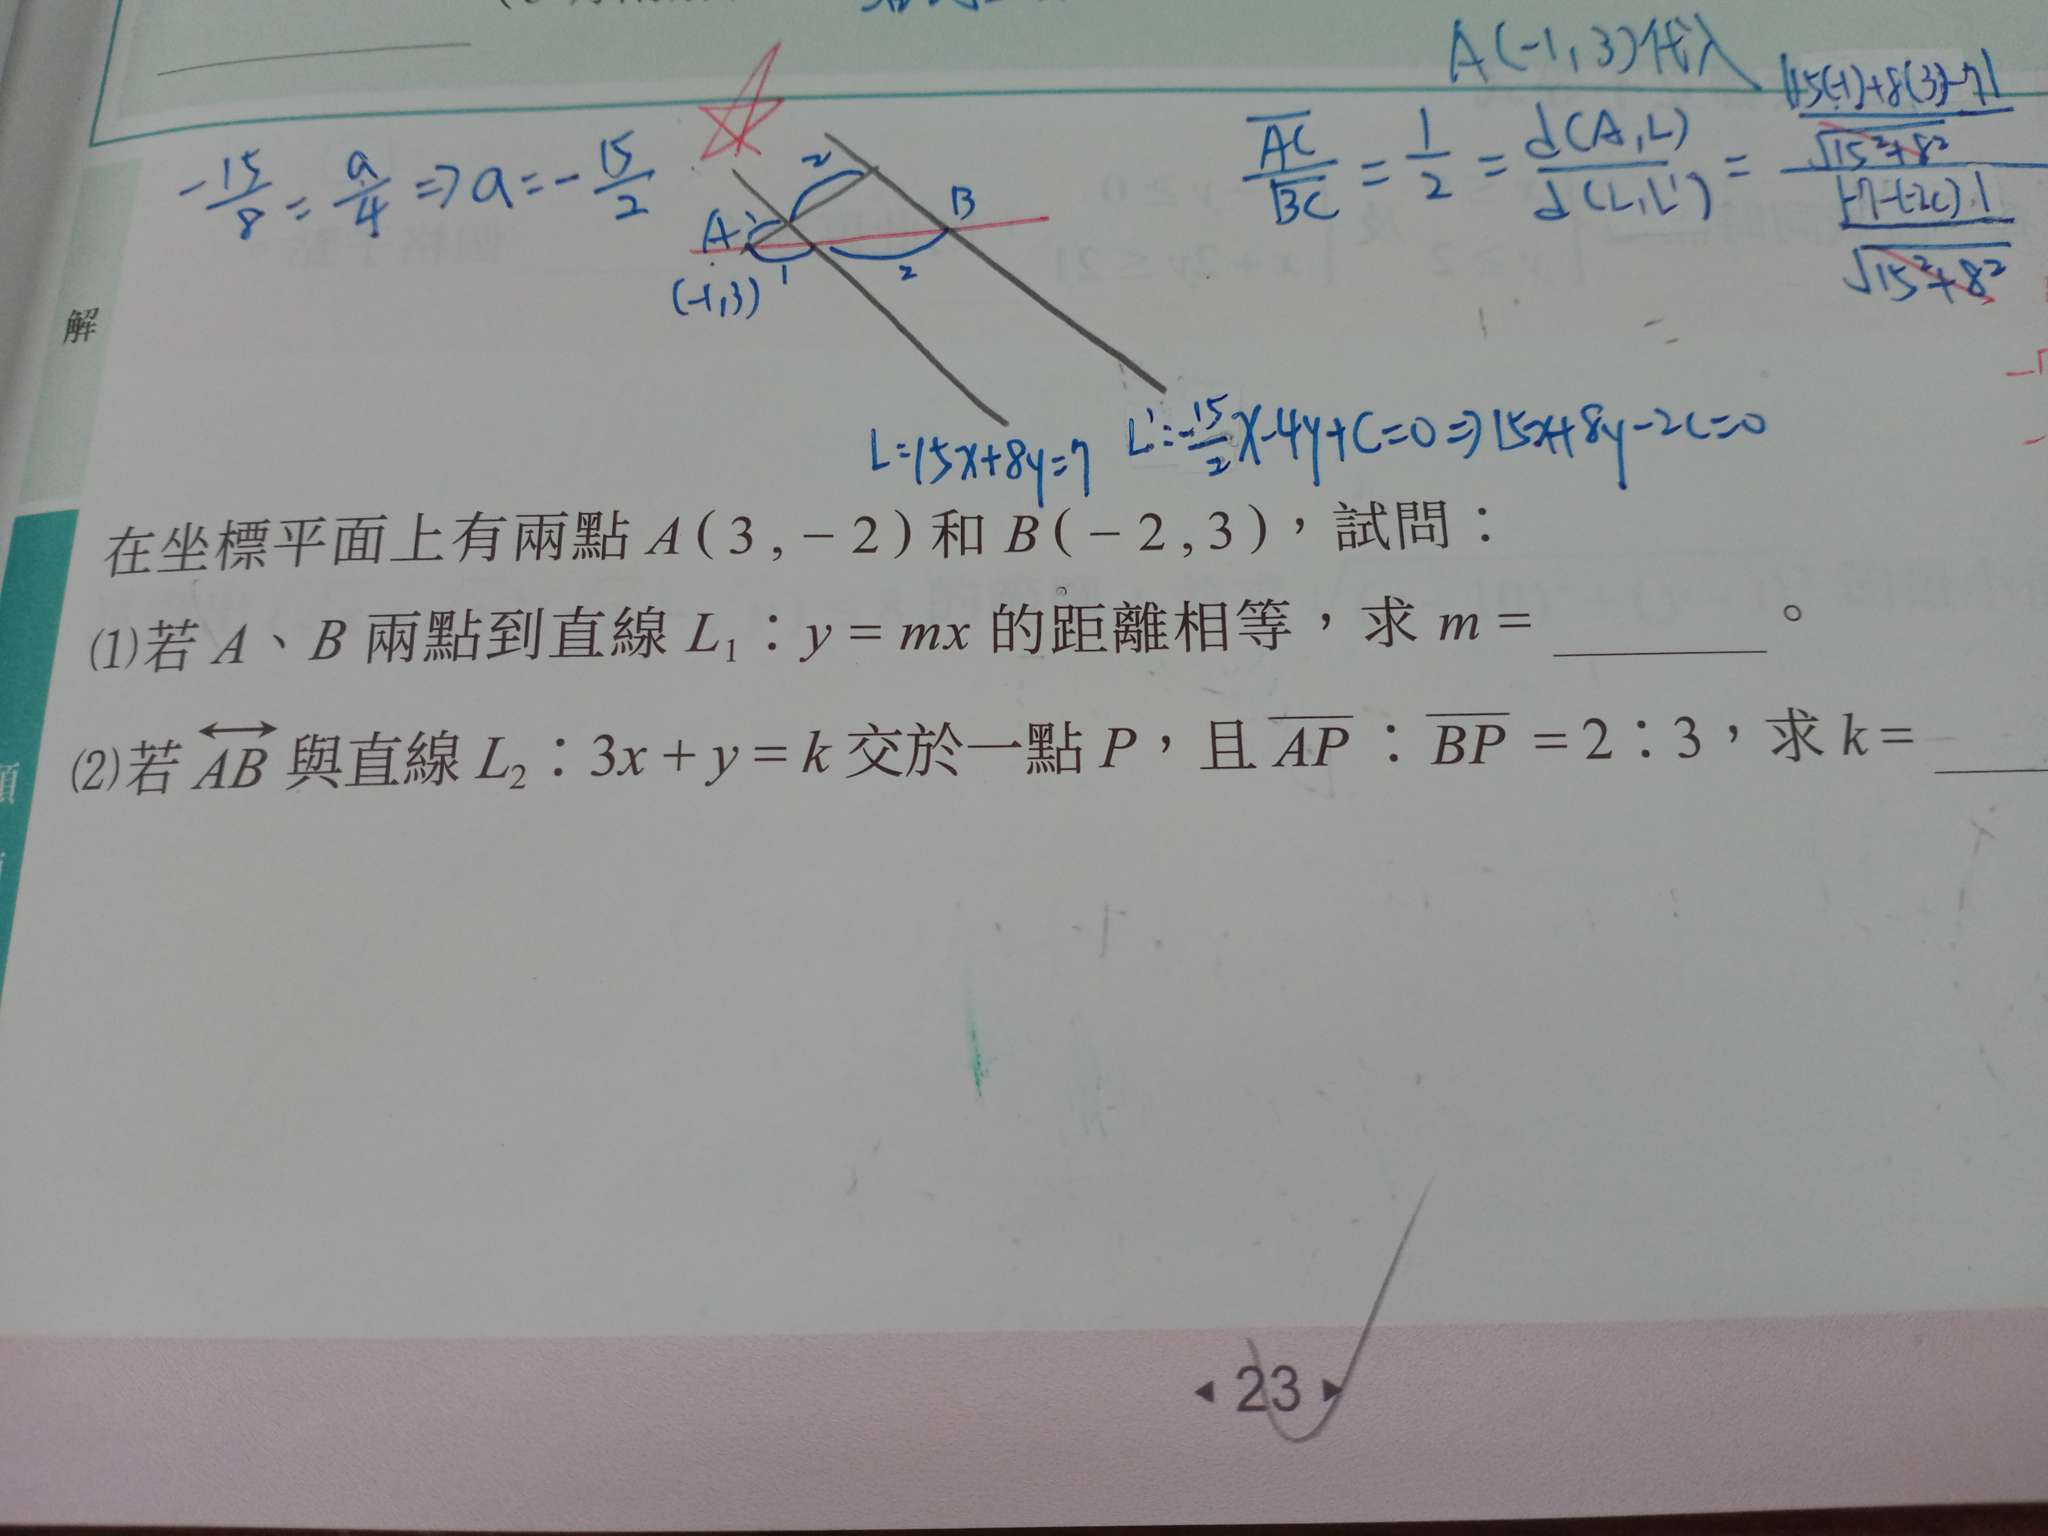 A(-1,3)代入
-15/8 = a/4 ⇒ a = -15/2
2
A
B
(-1,3)
1
2
AC/BC = 1/2 = d(A,L)/d(L,L') = (|15(-1)+8(3)-7|/√15²+8²)/(|-7-(-2c)|/√15²+8²)
解
L=15x+8y=7
L':-15/2x-4y+C=0⇒15x+8y-2C=0
在坐標平面上有兩點 A(3,-2)和 B(-2,3),試問:
(1)若 A、B 兩點到直線 L₁:y=mx 的距離相等,求 m= ______。
(2)若 AB 與直線 L₂:3x+y=k 交於一點 P,且 AP:BP=2:3,求 k= ____
◂ 23 ▸